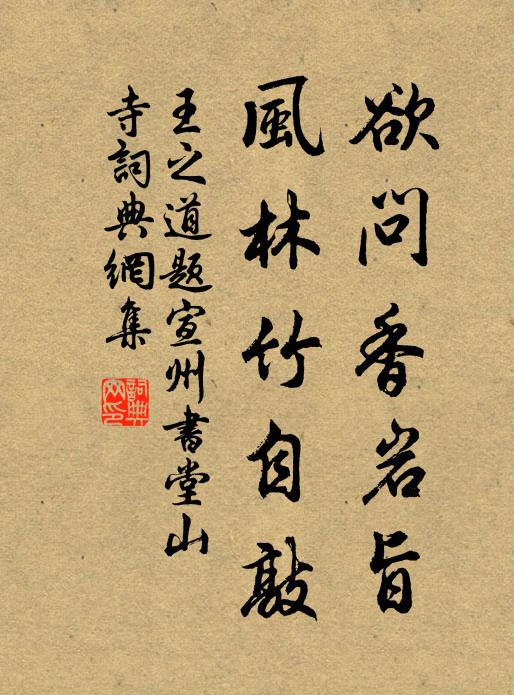 欲问香岩旨
風林竹自敲
王之道題宣州書堂山
寺詞典網集
詞典
网印